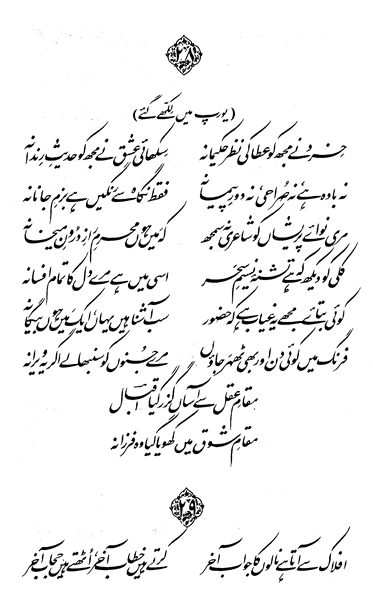 ۲۸
(یورپ میں لِکھّے گئے)
خِرد نے مجھ کو عطا کی نظر حکیمانہ سِکھائی عشق نے مجھ کو حدیثِ رِندانہ
نہ بادہ ہے، نہ صُراحی، نہ دَورِ پیمانہ فقط نگاہ سے رنگیں ہے بزمِ جانانہ
مری نوائے پریشاں کو شاعری نہ سمجھ کہ مَیں ہوں محرمِ رازِ درونِ میخانہ
کلی کو دیکھ کہ ہے تشنۂ نسیمِ سحَر اسی میں ہے مرے دل کا تمام افسانہ
کوئی بتائے مجھے یہ غیاب ہے کہ حضور سب آشنا ہیں یہاں، ایک مَیں ہوں بیگانہ
فرنگ میں کوئی دن اور بھی ٹھہر جاؤں مرے جُنوں کو سنبھالے اگر یہ ویرانہ
مقامِ عقل سے آساں گزر گیا اقبال
مقامِ شوق میں کھویا گیا وہ فرزانہ
۲۹
افلاک سے آتا ہے نالوں کا جواب آخر کرتے ہیں خطاب آخر، اُٹھتے ہیں حجاب آخر